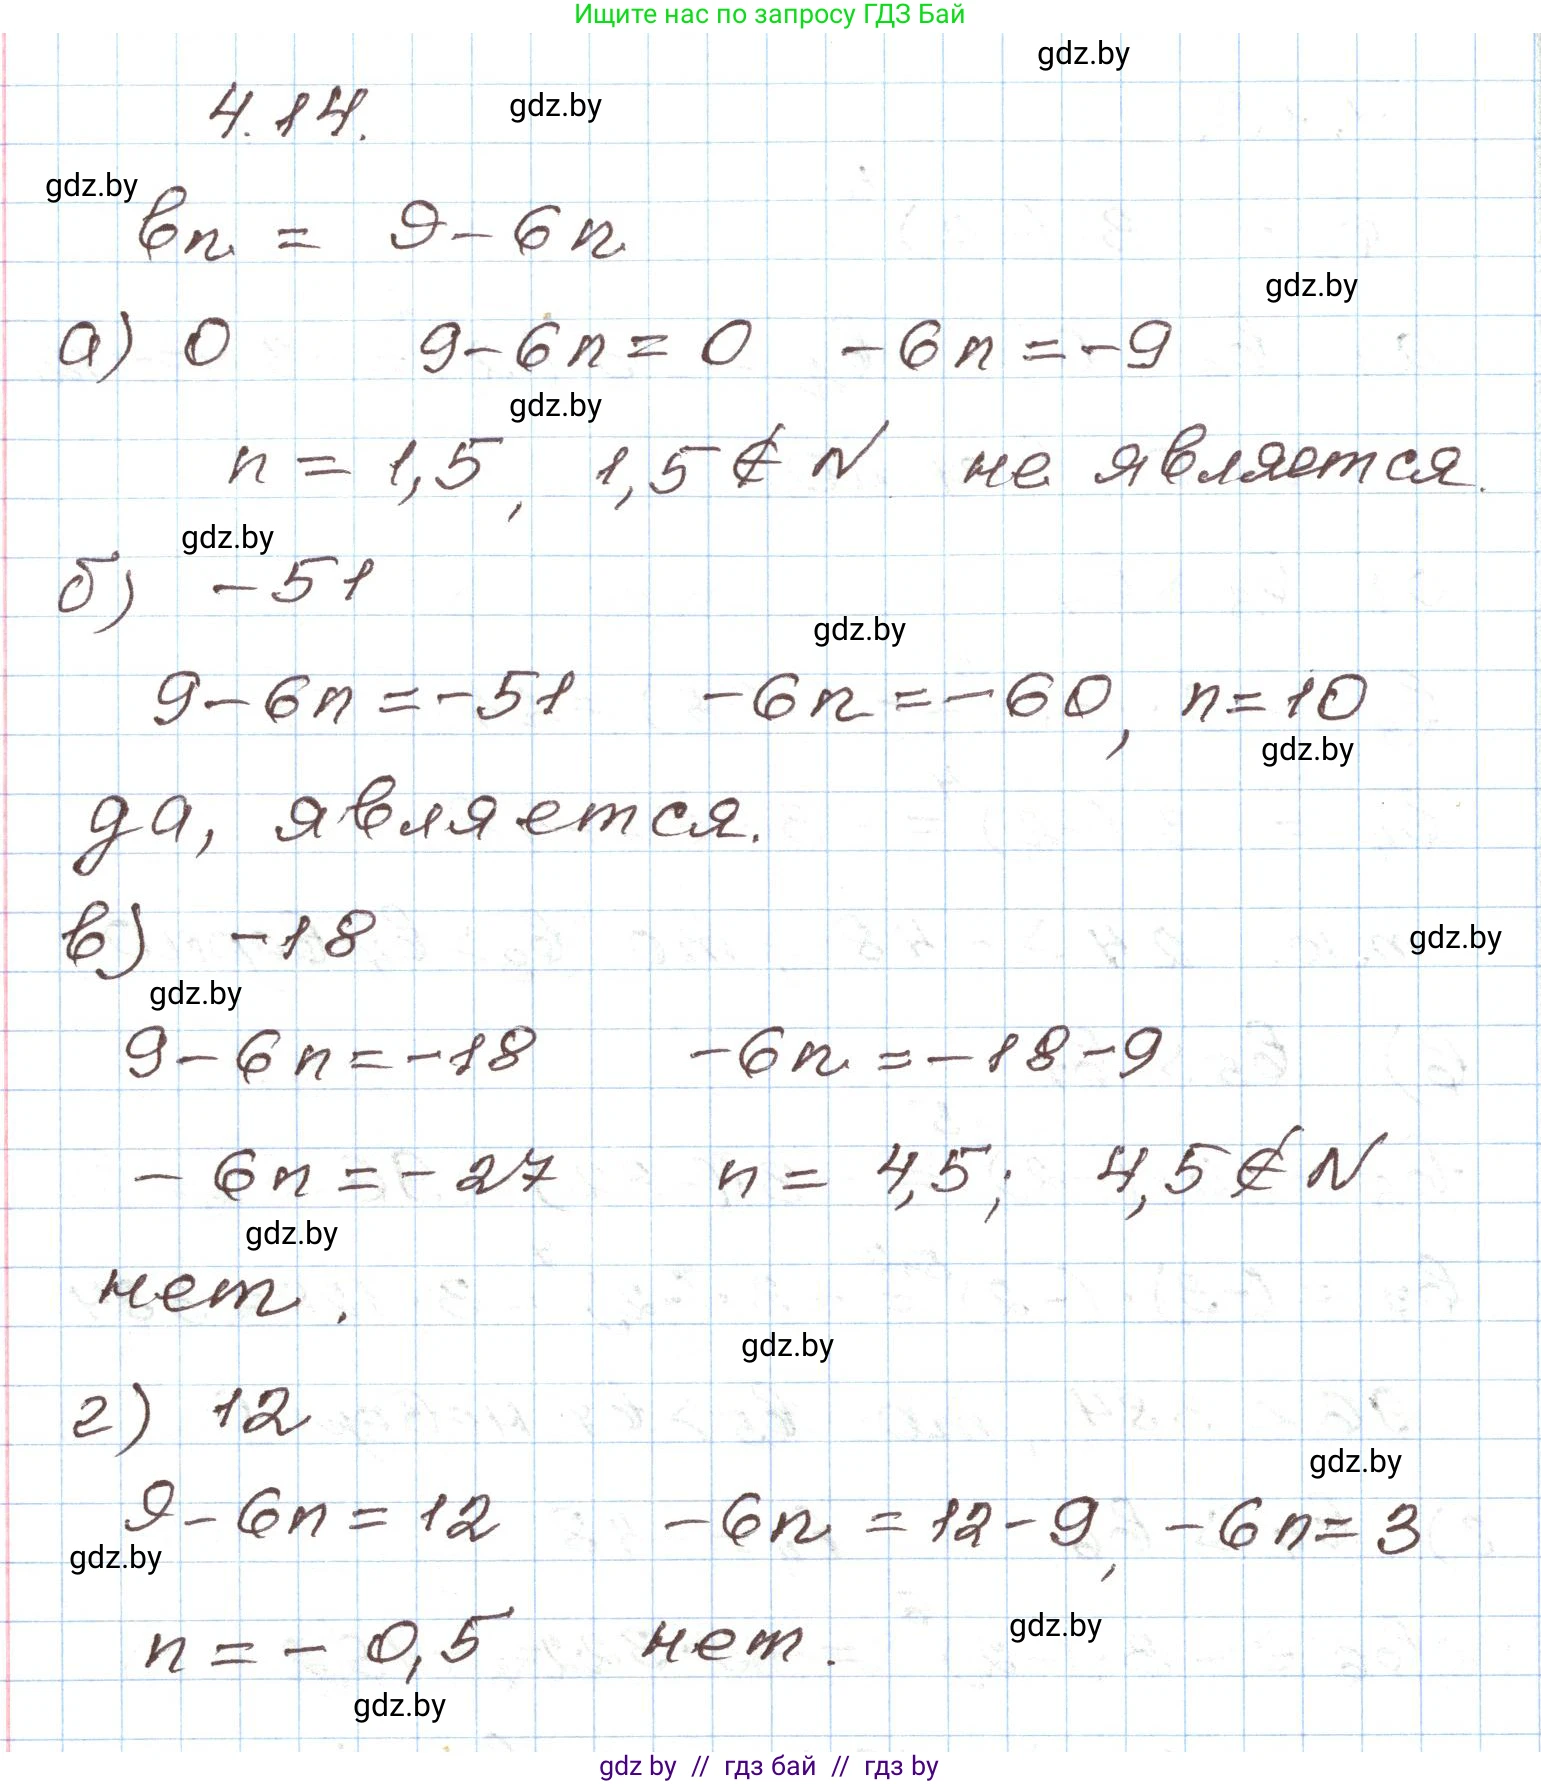 Ищите нас по запросу ГДЗ Бай
gdz.by
4.14.
gdz.by
gdz.by
bn = 9-6n
gdz.by
а) 0 9-6n=0 -6n=-9
gdz.by
n=1,5, 1,5∉N не является.
gdz.by
б) -51
gdz.by
9-6n=-51 -6n=-60, n=10
gdz.by
да, является.
в) -18
gdz.by
gdz.by
9-6n=-18 -6n=-18-9
-6n=-27 n=4,5; 4,5∉N
gdz.by
нет.
gdz.by
г) 12
gdz.by
9-6n=12 -6n=12-9, -6n=3
gdz.by
n=-0,5 нет.
gdz.by
gdz.by
gdz by // гдз бай // гдз by